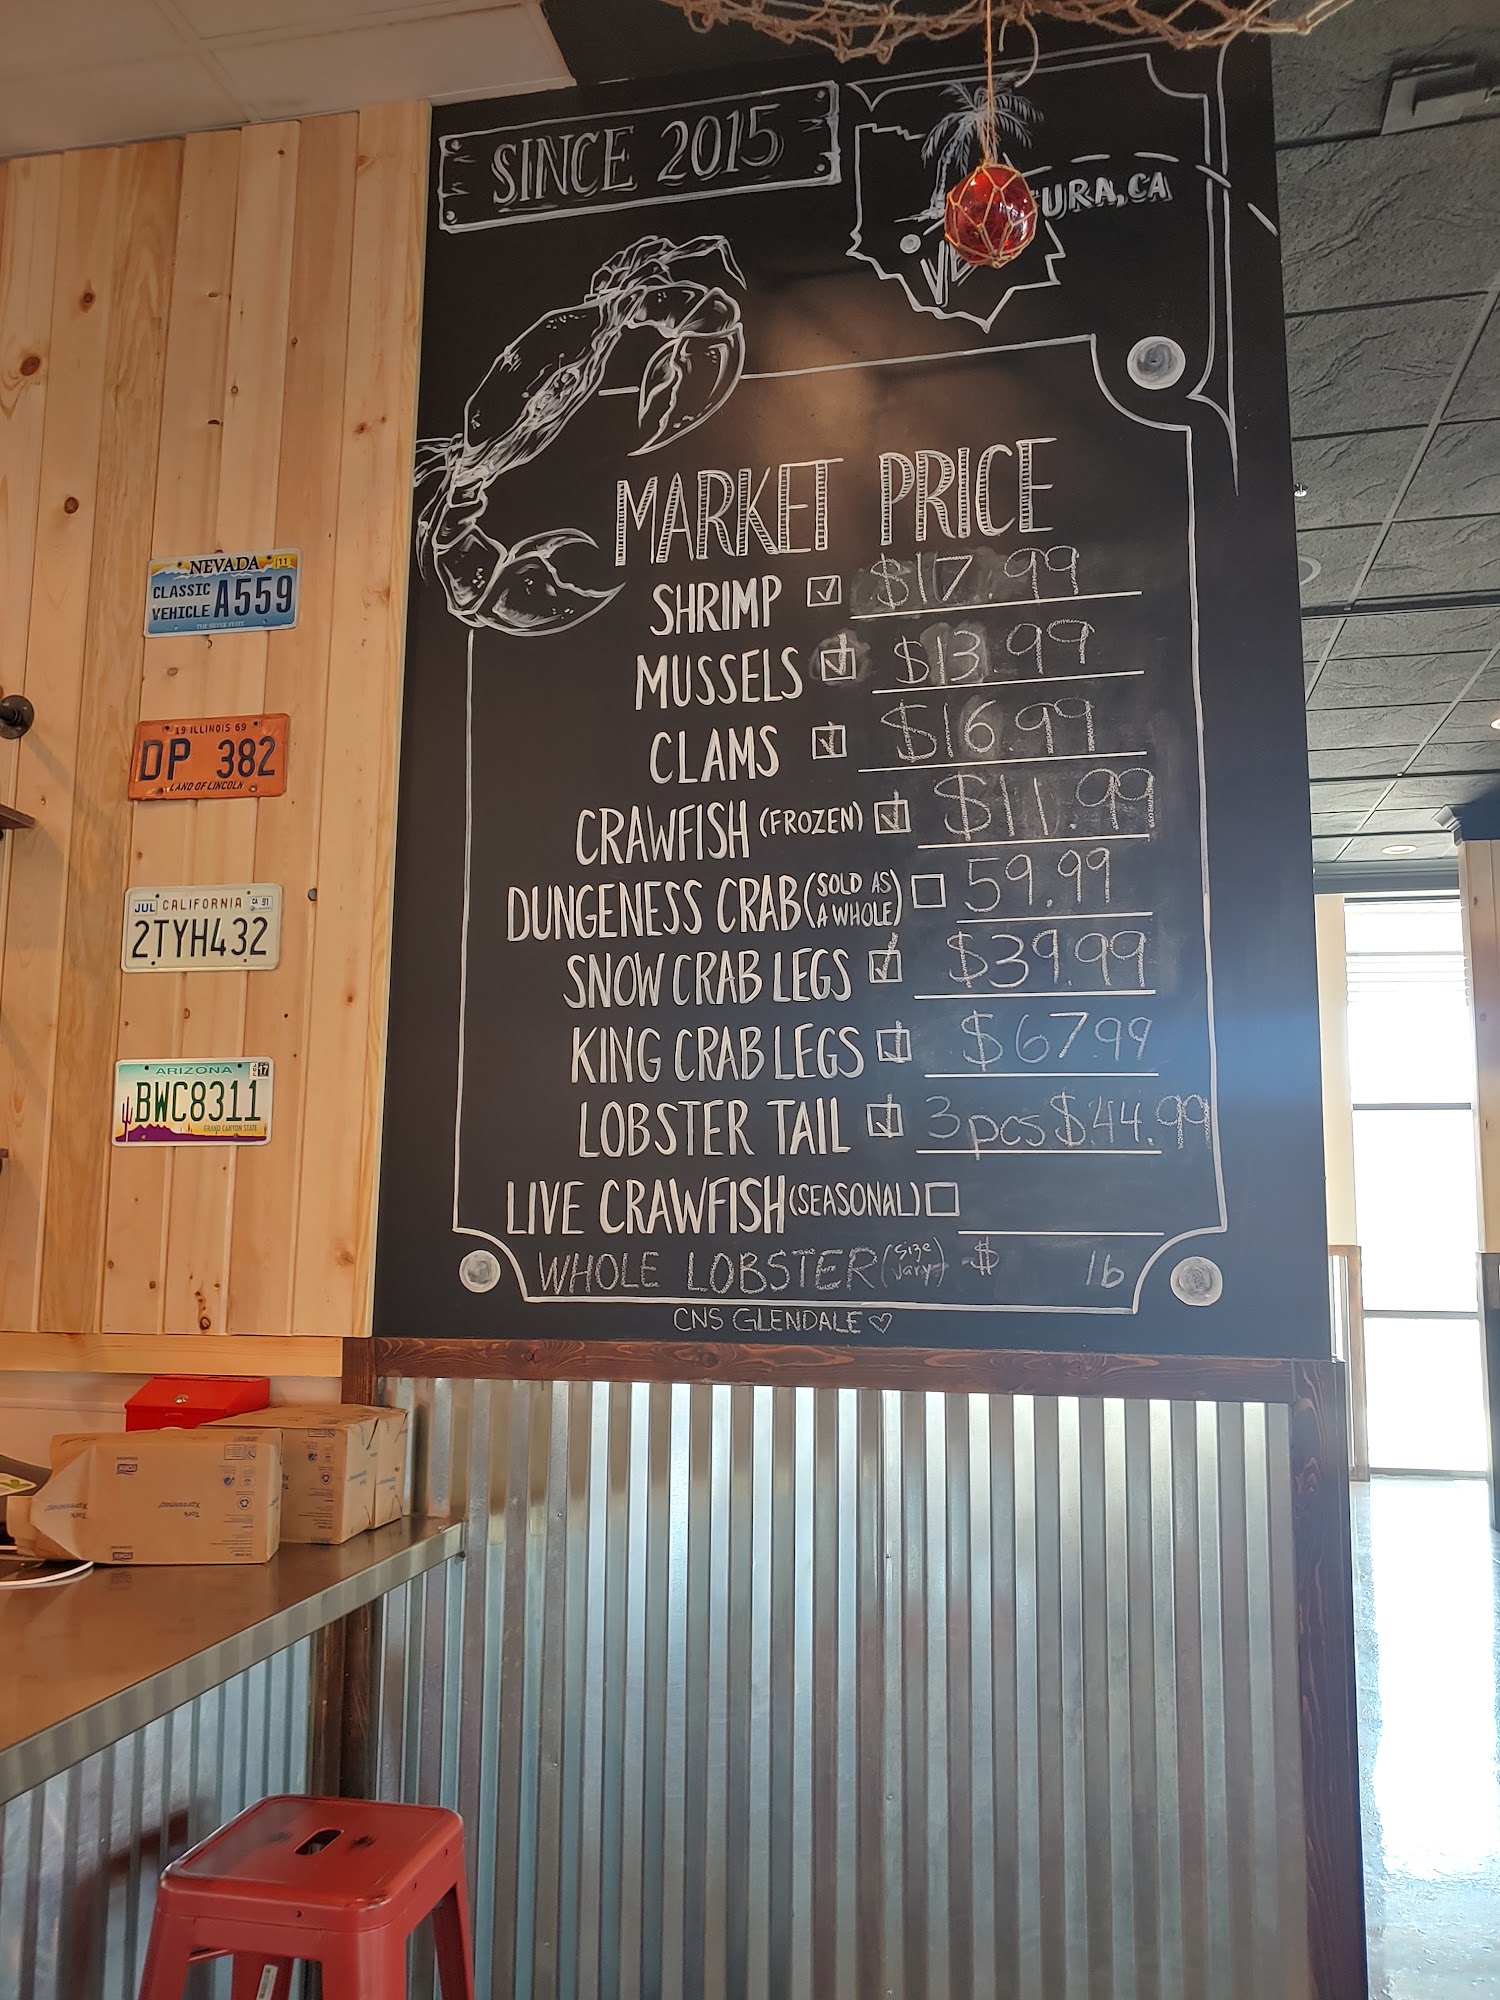 SINCE 2015
URA, CA
MARKET PRICE
SHRIMP $17.99
MUSSELS $13.99
CLAMS $16.99
CRAWFISH (FROZEN) $11.99
DUNGENESS CRAB (SOLD AS A WHOLE) 59.99
SNOW CRAB LEGS $39.99
KING CRAB LEGS $67.99
LOBSTER TAIL 3pcs $44.99
LIVE CRAWFISH (SEASONAL)
WHOLE LOBSTER (size vary) $ lb
CNS GLENDALE ♡
NEVADA 11
CLASSIC VEHICLE A559
THE SILVER STATE
19 ILLINOIS 69
DP 382
LAND OF LINCOLN
JUL CALIFORNIA CA 91
2TYH432
ARIZONA 17
BWC8311
GRAND CANYON STATE
Tork
Xpressnap
TORK